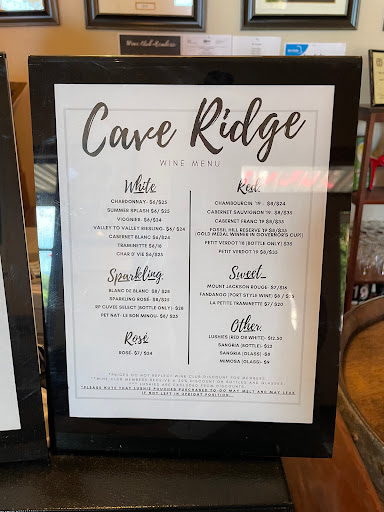 Cave Ridge
WINE MENU
White
CHARDONNAY- $6/$25
SUMMER SPLASH $6/$25
VIOGNIER- $6/$24
VALLEY TO VALLEY RIESLING- $6/$24
CABERNET BLANC $6/$24
TRAMINETTE $6/18
CHAR D' VIE $6/$25
Sparkling
BLANC DE BLANC- $8/$28
SPARKLING ROSE- $8/$25
RP CUVEE SELECT (BOTTLE ONLY)- $28
PET NAT- LE SON MINOU- $8/$25
Rosé
ROSE- $7/$24
Red
CHAMBOURCIN '19 - $8/$24
CABERNET SAUVIGNON '19- $8/$35
CABERNET FRANC '19 $8/$35
FOSSIL HILL RESERVE '19 $8/$35
(GOLD MEDAL WINNER IN GOVERNOR'S CUP)
PETIT VERDOT '18 (BOTTLE ONLY) $35
PETIT VERDOT '19 $8/$35
Sweet
MOUNT JACKSON ROUGE- $7/$16
FANDANGO (PORT STYLE WINE) $8 / $25
LA PETITE TRAMINETTE $7 / $20
Other
LUSHIES (RED OR WHITE)- $12.50
SANGRIA (BOTTLE)- $23
SANGRIA (GLASS)- $8
MIMOSA (GLASS)- $9
*PRICES DO NOT REFLECT WINE CLUB DISCOUNT FOR MEMBERS.
*PLEASE NOTE THAT LUSHIE POUCHES PURCHASED TO-GO MAY MELT AND MAY LEAK
IF NOT LEFT IN UPRIGHT POSITION